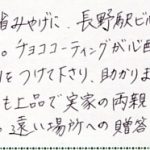 省みやげに、長野駅ビル
。チョココーティングが心配
をつけて下さり、助かりま
も上品で実家の両親
。遠い場所への贈答